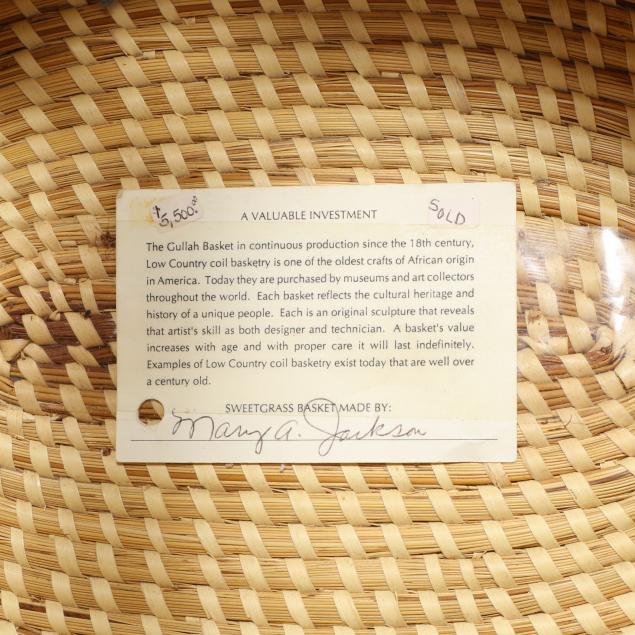 $5,500.00
SOLD
A VALUABLE INVESTMENT
The Gullah Basket in continuous production since the 18th century,
Low Country coil basketry is one of the oldest crafts of African origin
in America. Today they are purchased by museums and art collectors
throughout the world. Each basket reflects the cultural heritage and
history of a unique people. Each is an original sculpture that reveals
that artist's skill as both designer and technician. A basket's value
increases with age and with proper care it will last indefinitely.
Examples of Low Country coil basketry exist today that are well over
a century old.
SWEETGRASS BASKET MADE BY:
Mary A. Jackson